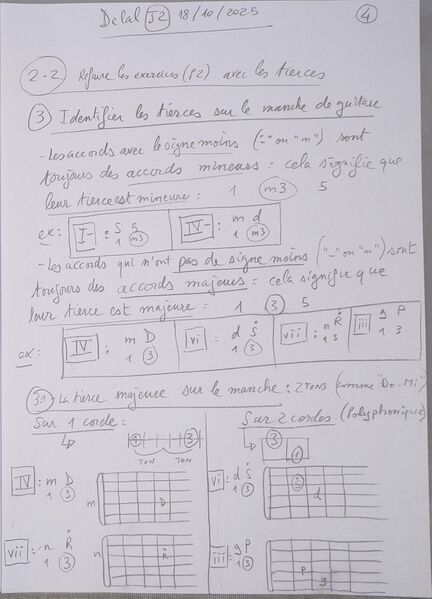 Delal J2 18/10/2025 4
2.2 Refaire les exercices (P2) avec les tierces
3 Identifier les tierces sur le manche de guitare
- Les accords avec le signe moins ("-" ou "m") sont
toujours des accords mineurs : cela signifie que
leur tierce est mineure : 1 m3 5
ex : I- : S g IV- : m d
1 m3 1 m3
- Les accords qui n'ont pas de signe moins ("-" ou "m") sont
toujours des accords majeurs : cela signifie que
leur tierce est majeure : 1 3 5
ex : IV : m D vi : d Ṡ vii : n Ṙ iii g P
1 3 1 3 1 3 1 3
3.1 La tierce majeure sur le manche : 2 TONS (comme "Do-Mi")
Sur 1 corde : Sur 2 cordes (Polyphonique)
1 3 3
TON TON 1
IV : m D vi : d Ṡ
1 3 1 3
m D d
vii : n Ṙ iii : g P
1 3 1 3
n Ṙ P g